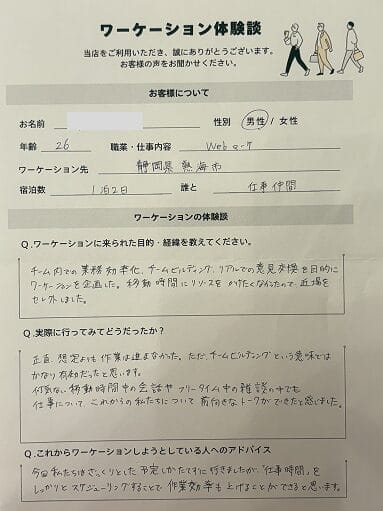 ワーケーション体験談
当店をご利用いただき、誠にありがとうございます。
お客様の声をお聞かせください。
お客様について
お名前 性別 男性 / 女性
年齢 26 職業・仕事内容 Webマーケ
ワーケーション先 静岡県 熱海市
宿泊数 1泊2日 誰と 仕事仲間
ワーケーションの体験談
Q.ワーケーションに来られた目的・経緯を教えてください。
チーム内での業務効率化、チームビルディング、リアルでの意見交換を目的に
ワーケーションを企画した。移動時間にリソースをかけたくなかったので、近場を
セレクトしました。
Q.実際に行ってみてどうだったか？
正直、想定よりも作業は進まなかった。ただ、チームビルディングという意味では
かなり有効だったと思います。
何気ない移動時間中の会話やフリータイム中の雑談の中でも
仕事について、これからの私たちについて前向きなトークができたと感じました。
Q.これからワーケーションしようとしている人へのアドバイス
今回私たちはざっくりとした予定しかたてずに行きましたが、「仕事時間」を
しっかりとスケジューリングすることで作業効率も上げることができると思います。